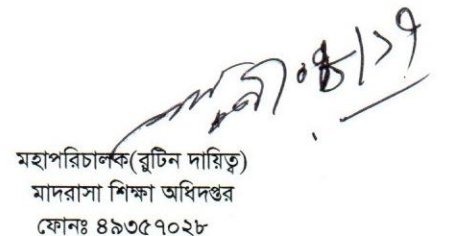 মহাপরিচালক(রুটিন দায়িত্ব)
মাদরাসা শিক্ষা অধিদপ্তর
ফোনঃ ৪৯৩৫৭০২৮